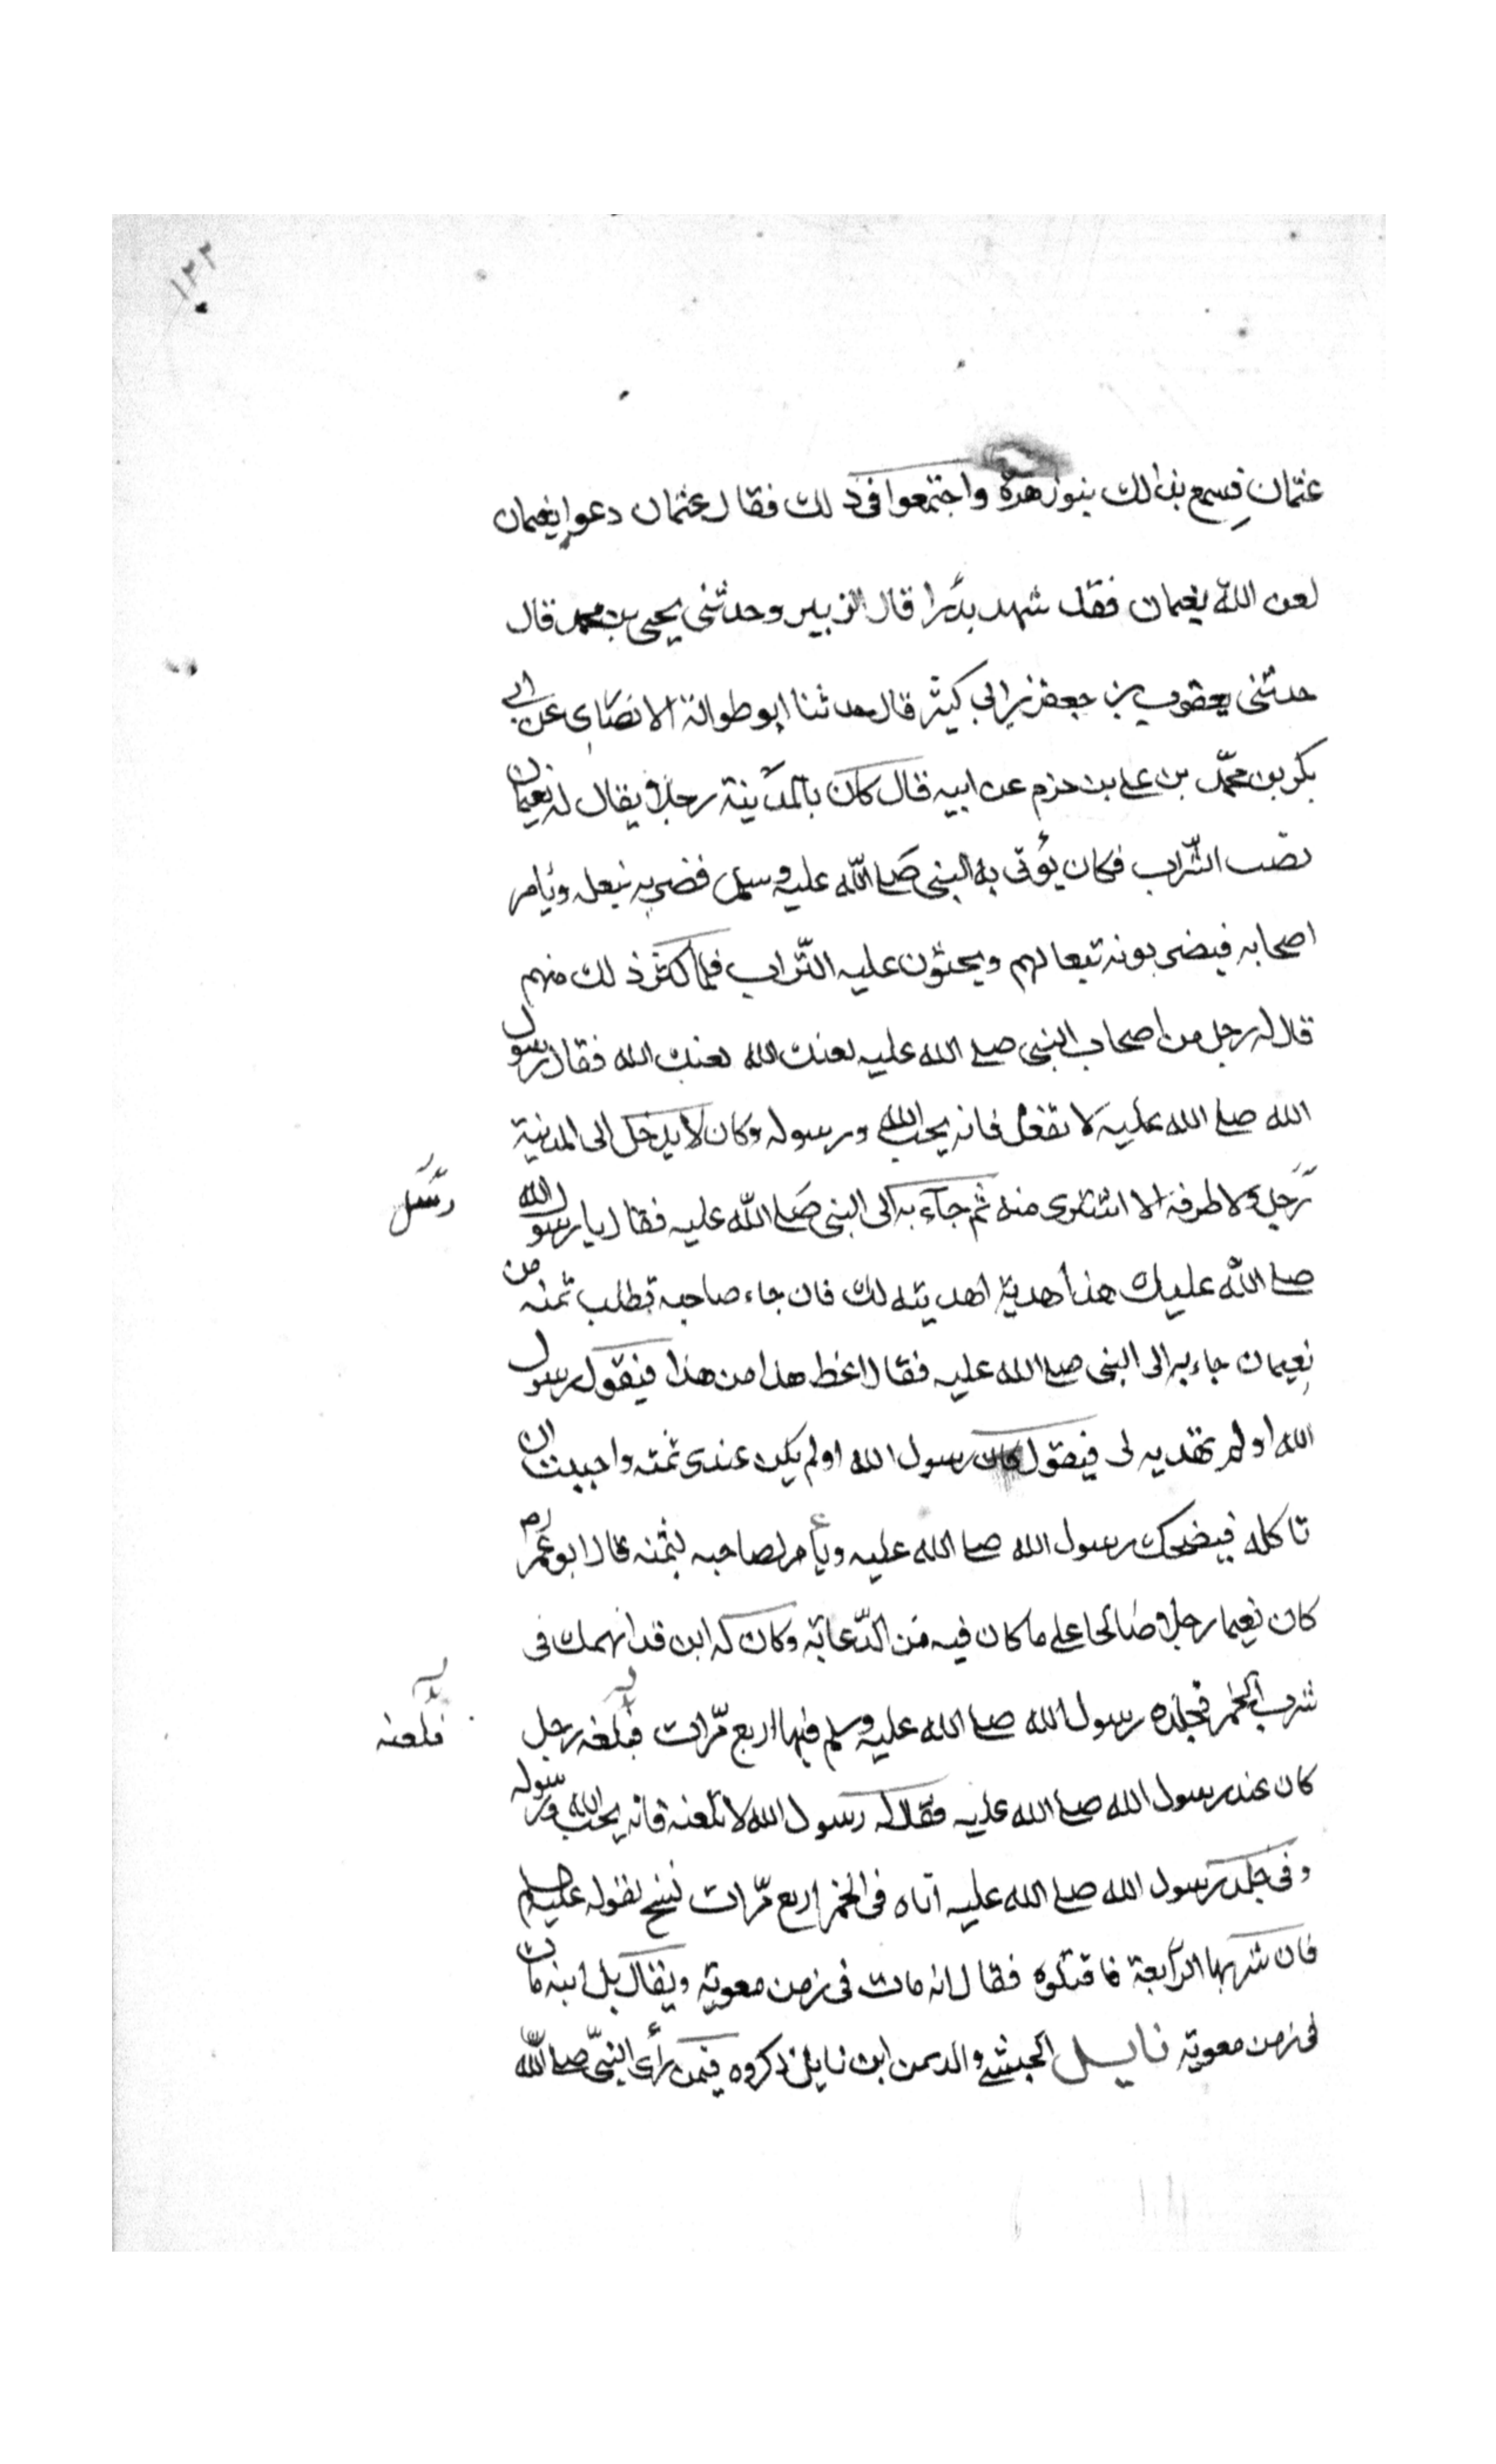 ١٢٢
عثمان فسمع بذلك بنو زهرة واجتمعوا في ذلك فقال عثمان دعوا نعيمان
لعن الله نعيمان فقد شهد بدرا قال الزبير وحدثني يحيى بن محمد قال
حدثني يعقوب بن جعفر بن ابي كثير قال حدثنا ابو طوالة الانصاري عن ابي
بكر بن محمد بن علي بن حزم عن ابيه قال كان بالمدينة رجلا يقال له نعيمان
نصب الشراب فكان يؤتى به النبي صلى الله عليه وسلم فضربه بنعله ويامر
اصحابه فيضربونه بنعالهم ويحثون عليه التراب فلما كثر ذلك منهم
قال له رجل من اصحاب النبي صلى الله عليه لعنك الله لعنك الله فقال رسول
الله صلى الله عليه لا تفعل فانه يحب الله ورسوله وكان لا يدخل الى المدينة
رجل ولا طرفة الا اشترى منه ثم جاء به الى النبي صلى الله عليه فقال يا رسول الله
رسل
صلى الله عليك هذا هدية اهديته لك فان جاء صاحبه يطلب ثمنه من
نعيمان جاء به الى النبي صلى الله عليه فقال اعط هذا من هذا فيقول رسول
الله اولم تهديه لي فيقول رسول الله اولم يكن عندي ثمنه واحببت ان
تاكله فيضحك رسول الله صلى الله عليه ويأمر لصاحبه بثمنه قال ابو عمر
كان نعيما رجلا صالحا على ما كان فيه من الدعابة وكان له ابن قد انهمك في
شرب الخمر فجلده رسول الله صلى الله عليه وسلم فيها اربع مرات فلعنه رجل
فلعنه
كان عند رسول الله صلى الله عليه فقال له رسول الله لا تلعنه فانه يحب الله ورسوله
وفي جلد رسول الله صلى الله عليه اتاه في الخمر اربع مرات نسخ لقوله عليه السلم
فان شربها الرابعة فاقتلوه فقال انه مات في زمن معوية ويقال بل ابنه مات
في زمن معوية نايل الحبشي والد يمن ابن نايل ذكروه فيمن رأى النبي صلى الله